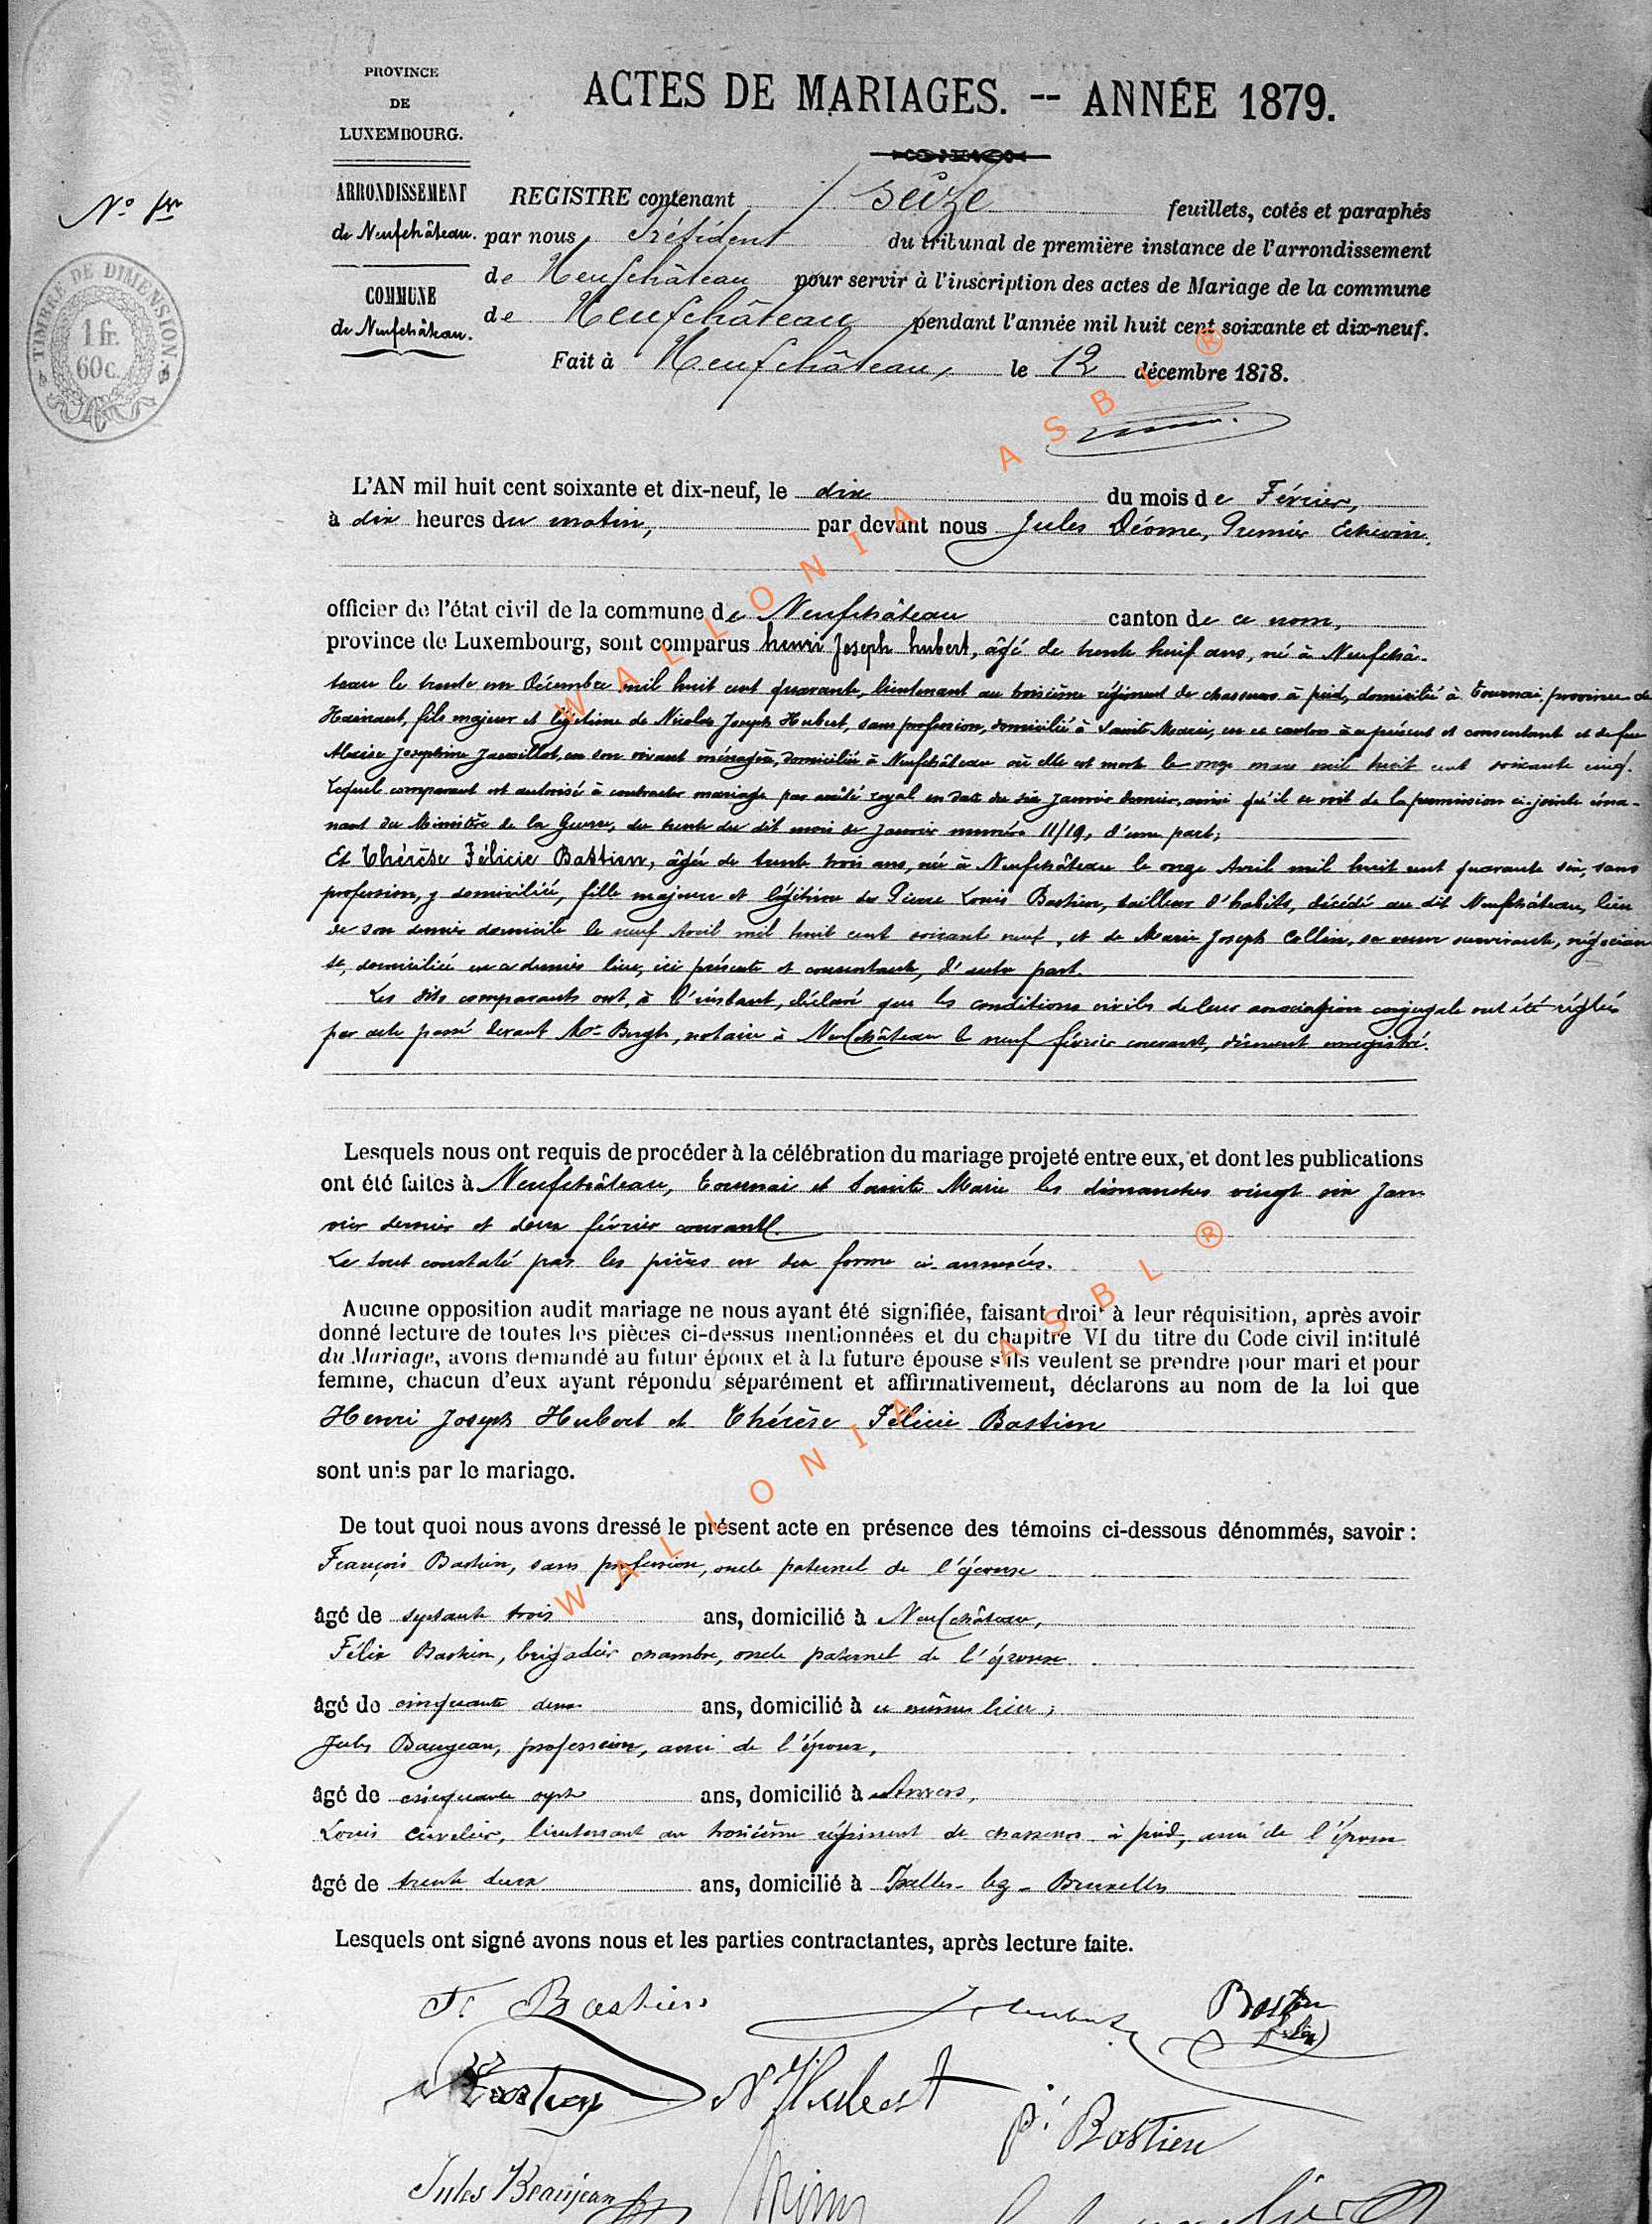 PROVINCE
DE
LUXEMBOURG.
ACTES DE MARIAGES. -- ANNÉE 1879.
ARRONDISSEMENT
de Neufchâteau.
COMMUNE
de Neufchâteau.
N° 1er
TIMBRE DE DIMENSION
1 fr.
60 c.
REGISTRE contenant seize feuillets, cotés et paraphés
par nous Président du tribunal de première instance de l'arrondissement
de Neufchâteau pour servir à l'inscription des actes de Mariage de la commune
de Neufchâteau pendant l'année mil huit cent soixante et dix-neuf.
Fait à Neufchâteau, le 12 décembre 1878.
L'AN mil huit cent soixante et dix-neuf, le dix du mois de Février,
à dix heures du matin, par devant nous Jules Déome, Premier Echevin,
officier de l'état civil de la commune de Neufchâteau canton de ce nom,
province de Luxembourg, sont comparus henri Joseph hubert, âgé de trente huit ans, né à Neufchâ-
teau le trente un Décembre mil huit cent quarante, lieutenant au troisième régiment de chasseurs à pied, domicilié à Tournai, province de
Hainaut, fils majeur et légitime de Nicolas Joseph Hubert, sans profession, domicilié à Sainte Marie, en ce canton à ce présent et consentant et de feu
Marie Josephine Jacmillot, en son vivant ménagère, domiciliée à Neufchâteau où elle est morte le onze mars mil huit cent soixante cinq.
Lequel comparant est autorisé à contracter mariage par arrêté royal en date du six Janvier dernier, ainsi qu'il se voit de la permission ci-jointe éma-
nant du Ministère de la Guerre, du trente du dit mois de Janvier numéro 11/19, d'une part;
Et Thérèse Félicie Bastien, âgée de trente trois ans, née à Neufchâteau le onze Avril mil huit cent quarante six, sans
profession, y domiciliée, fille majeure et légitime de Pierre Louis Bastien, tailleur d'habits, décédé au dit Neufchâteau, lieu
de son dernier domicile le neuf Avril mil huit cent soixante neuf, et de Marie Joseph Collin, sa veuve survivante, négocian
te, domiciliée en ce dernier lieu, ici présente et consentante, d'autre part.
Les dits comparants ont, à l'instant, déclaré que les conditions civiles de leur association conjugale ont été réglées
par acte passé devant Me Bergh, notaire à Neufchâteau le neuf février courant, dûment enregistré.
Lesquels nous ont requis de procéder à la célébration du mariage projeté entre eux, et dont les publications
ont été faites à Neufchâteau, Tournai et Sainte Marie les dimanches vingt six Jan
vier dernier et deux février courant.
Le tout constaté par les pièces en due forme ci-annexées.
Aucune opposition audit mariage ne nous ayant été signifiée, faisant droit à leur réquisition, après avoir
donné lecture de toutes les pièces ci-dessus mentionnées et du chapitre VI du titre du Code civil intitulé
du Mariage, avons demandé au futur époux et à la future épouse s'ils veulent se prendre pour mari et pour
femme, chacun d'eux ayant répondu séparément et affirmativement, déclarons au nom de la loi que
Henri Joseph Hubert et Thérèse Félicie Bastien
sont unis par le mariage.
De tout quoi nous avons dressé le présent acte en présence des témoins ci-dessous dénommés, savoir :
François Bastien, sans profession, oncle paternel de l'épouse
âgé de septante trois ans, domicilié à Neufchâteau,
Félix Bastien, brigadier chambre, oncle paternel de l'épouse
âgé de cinquante deux ans, domicilié à ce même lieu,
Jules Baujean, professeur, ami de l'époux,
âgé de cinquante sept ans, domicilié à Anvers,
Louis Cuvelier, lieutenant au troisième régiment de chasseurs à pied, ami de l'époux
âgé de trente deux ans, domicilié à Ixelles-lez-Bruxelles
Lesquels ont signé avons nous et les parties contractantes, après lecture faite.
F. Bastien
J Hubert
Bastien
Bastien
N J Hubert
P. Bastien
Jules Beaujean
WALLONIA ASBL ®
WALLONIA ASBL ®